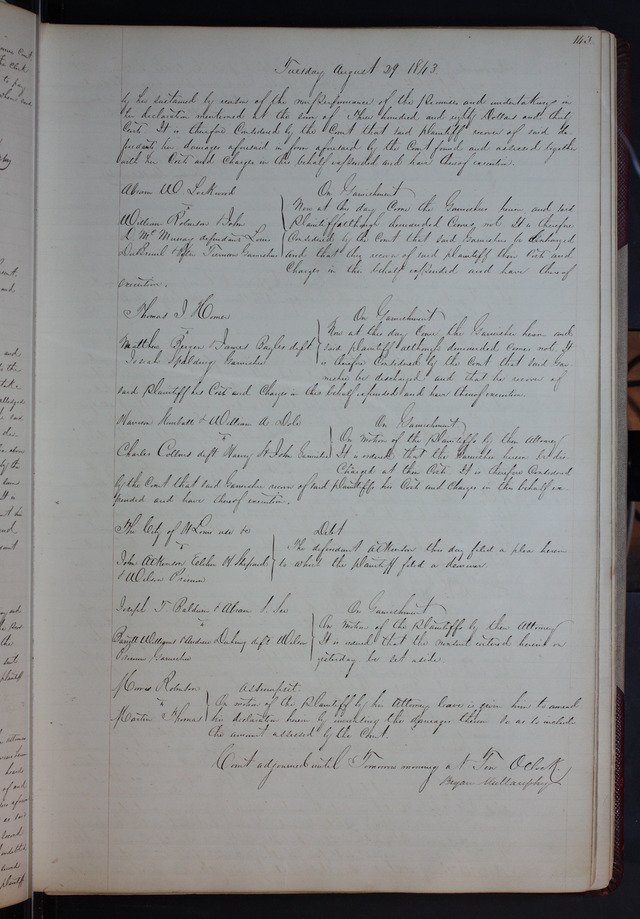 143
Tuesday August 29 1843
by her sustained by reason of the non performance of the promises and undertakings in
her declaration mentioned at the sum of Three hundred and eighty Dollars and thirty
Cents It is therefore Considered by the Court that said plaintiff recover of said De
fendants her damages aforesaid in form aforesaid by the Court found and assessed together
with her Costs and Charges in this behalf expended and have thereof execution.
Abram W. Lockwood
vs
William Robinson & John
Mc Murray defendants Louis
Freeman Garnishee
On Garnishment
Now at this day Come the Garnishee herein and said
plaintiff although demanded Comes not. It is therefore
Considered by the Court that said Garnishee be discharged
and that they recover of said plaintiff their Costs and
Charges in this behalf expended and have thereof
execution.
Thomas J. Homer
vs
Matthew Rieger & James deft
Josiah Spalding Garnishee
On Garnishment
Now at this day Come the Garnishee herein and
said plaintiff although demanded Comes not. It
is therefore Considered by the Court that said Gar
nishee be discharged and that he recover of
said plaintiff his Costs and Charges in this behalf expended and have thereof execution.
Kimball & William A. Dole
vs
Charles Collins deft Henry St John Garnishee
On Garnishment
On motion of the plaintiffs by their Attorney
It is ordered that the Garnishee herein be dis
Charged at their Costs. It is therefore Considered
by the Court that said Garnishee recover of said plaintiffs his Costs and Charges in this behalf ex
pended and have thereof execution.
The City of St Louis use &c
vs
John Atkinson Elihu H Shepard
& Wilson Primm
Debt
The defendant Atkinson this day filed a plea herein
to which the plaintiff filed a demurrer
Joseph T. Baldwin & Abram S. See
vs
Williams & Andrew deft Wilson
Primm Garnishee
On Garnishment
On motion of the plaintiffs by their Attorney
It is ordered that the nonsuit entered herein on
yesterday be set aside.
Robinson
vs
Martin Thomas
Assumpsit
On motion of the plaintiff by her Attorney leave is given him to amend
her declaration herein by increasing the damages therein so as to include
the amount assessed by the Court.
Court adjourned until Tomorrow morning at Ten O'Clock
Bryan Mullanphy